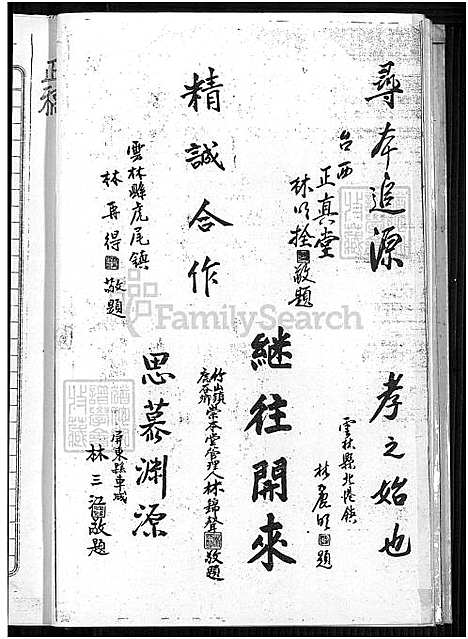 尋本追源
台西
正真堂
林以拴敬題
孝之始也
雲林縣北港鎮
林麗明題
精誠合作
雲林縣虎尾鎮
林再得敬題
継往開來
竹山鎮
鹿谷鄉
崇本堂管理人林錦聲敬題
思慕淵源
屏東縣車城
林三江敬題
正稿
FamilySearch